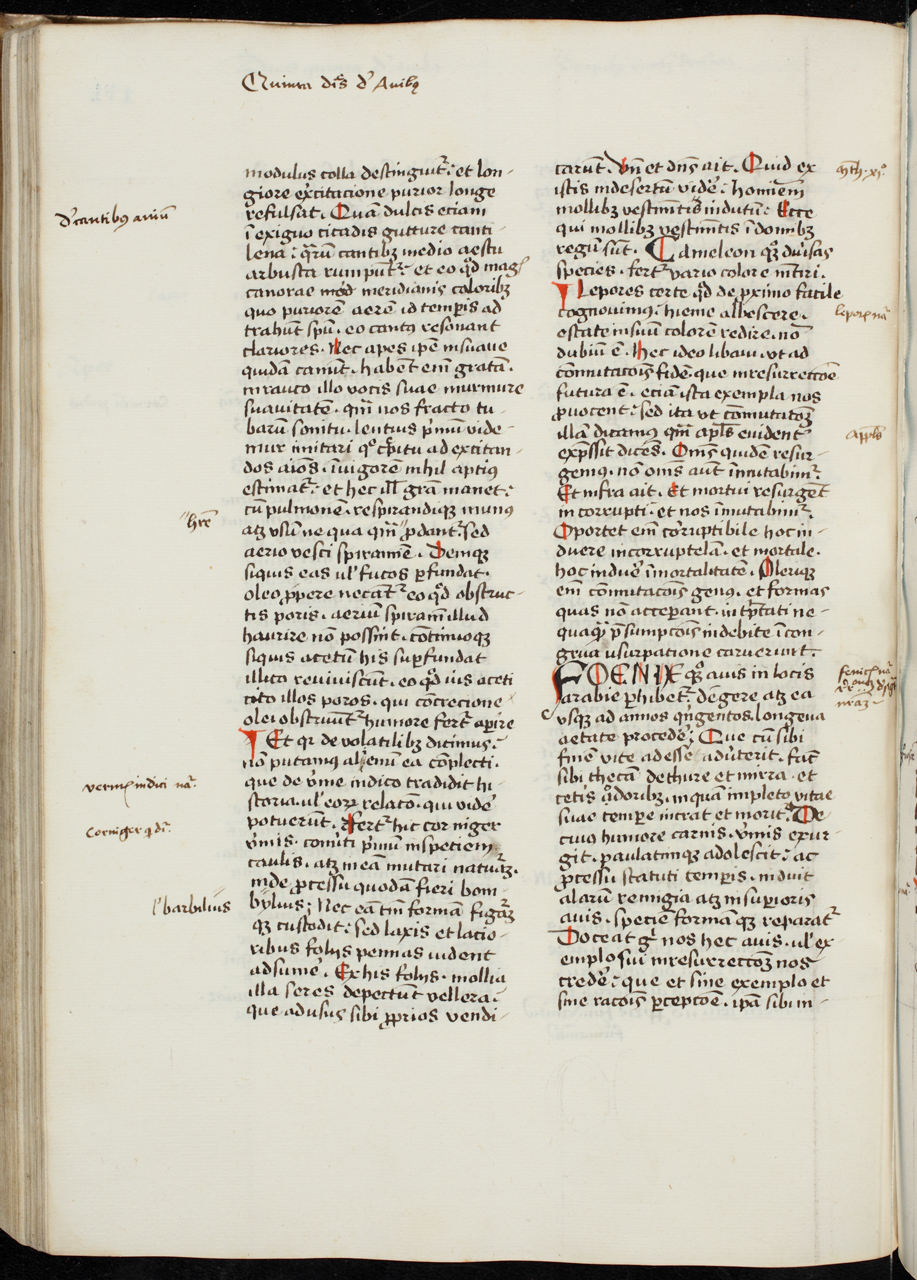 Quinta dis d' Auibꝯ
modulus colla destinguit᷑: et lon-
giore excitacione purior longe
refulsat. Quā dulcis eciam
d' cantibꝯ auiū
ī exiguo cicadis gutture canti-
lena: q̄rū cantibꝫ medio aestu
arbusta rumpūt᷑: et eo qd mag̃
canorae meridianis caloribꝫ
quo puriorē aerem id temꝑis ad
trahūt spū. eo cantꝯ resonant
clariores. Nec apes ip̄e insuaue
quidā canūt. habent em̄ gratā.
in rauco illo vocis suae murmure
suauitatē. qm̄ nos fracto tu-
barū sonitu lentius pⁱmū vide-
mur imitari qͦ ad excitan-
dos aīos. ī uigorē nihil aptiꝯ
estimat᷑: et hec ill' grā manet:
cū pulmone. respirandiqꝫ munꝯ
hr̄e
atqꝫ vsū ne qua qm̄ ꝓdant᷑. sed
aerio vesci spiramē. Deniqꝫ
siquis eas ul' fucos ꝑfundat.
oleo ꝓpere necant᷑ eo qd obstruc-
tis poris. aeriū spiram̄ illud
haurire nō possint. cōtinuoqꝫ
siquis acetū his suꝑfundat
illico reuiuiscūt. eo qd uis aceti
cito illos poros. qui concrecione
olei obstruūt᷑ humore fert᷑ aꝑire
Et qr de volatilibꝫ dicimus:
nō putamꝯ alienū ea cōplecti.
vermꝭ indici na᷑.
que de vⁱme indico tradidit hi-
storia. ul' eoꝝ relatō. qui videˀ
Corniger qͥ dr̄.
potuerūt. Fert᷑ hic cor niger
vⁱmis. conuti pⁱmū in speciem
caulis. atqꝫ in eam mutari naturā.
inde ꝓcessu quodā fieri bom-
l' barbilius
bylius; Nec eā tm̄ formā figurā
qꝫ custodit: sed laxis et lacio-
ribus folijs pennas uident᷑
adsumeˀ. Ex his folijs. mollia
illa seres depectūt vellera:
que ad usus sibi ꝓprios vendi-
carūt. Vn̄ et dn̄s ait. Quid ex
mͭh. xjͦ.
istis in desertū videˀ: hominem
mollibꝫ vestim̄tis indutū: Ecce
qui mollibꝫ vestim̄tis ī domibꝫ
regū sūt. Cameleon qꝫ diuˀsas
species. fert᷑ vario colore mētiri.
Lepores certe qd de ꝓximo facile
leporꝭ na᷑
cognouimꝯ. hieme albescere.
estate in suū colorē redire. nō
dubiū ē. Hec ideo libaui. vt ad
cōmutacōis fidē. que in resurrectiōe
futura ē. eciā ista exempla nos
ꝓuocent: sed ita vt cōmutatōꝫ
illā dicamꝯ qm̄ apl̄s euident᷑
apl̄s
exp̄ssit dicēs. Om̄s quidē resur-
gemꝯ. nō om̄s aūt īmutabim᷑.
Et infra ait. Et mortui resurgēt
in corrupti. et nos īmutabim᷑.
Oportet em̄ corruptibile hoc in-
duere incorruptelā. et mortale.
hoc indueˀ īmortalitatē. Pleriqꝫ
em̄ cōmutacōis genꝯ. et formas
quas nō acceperant. int̄p̄tati ne-
quaqͣꝫ p̄sumpcōis indebite ī con-
grua usurpatione caruerunt.
FOENIX qꝫ auis in locis
fenicꝭ na᷑
arabie ꝑhibet᷑. degere atqꝫ ea
vsqꝫ ad annos qͥngentos longeua
aetate procedeˀ. Que cū sibi
finē vite adesse aduˀterit. fac̄
sibi thecā de thure et mirra. et
cetis qͥ odoribꝫ. in quā impleto vitae
suae tempore intrat et morit᷑. De
cuiꝯ humore carnis. vⁱmis exur-
git. paulatimqꝫ adolescit: ac
ꝓcessu statuti temꝑis. induit
alarū remigia atqꝫ in suꝑioris
auis. speciē formāqꝫ reparat᷑
Doceat gͦ nos hec auis. ul' ex-
emplo sui in resurrectiōꝫ nos
credeˀ: que et sine exemplo et
sine racōis ꝑcepcōe. ip̄a sibi in-